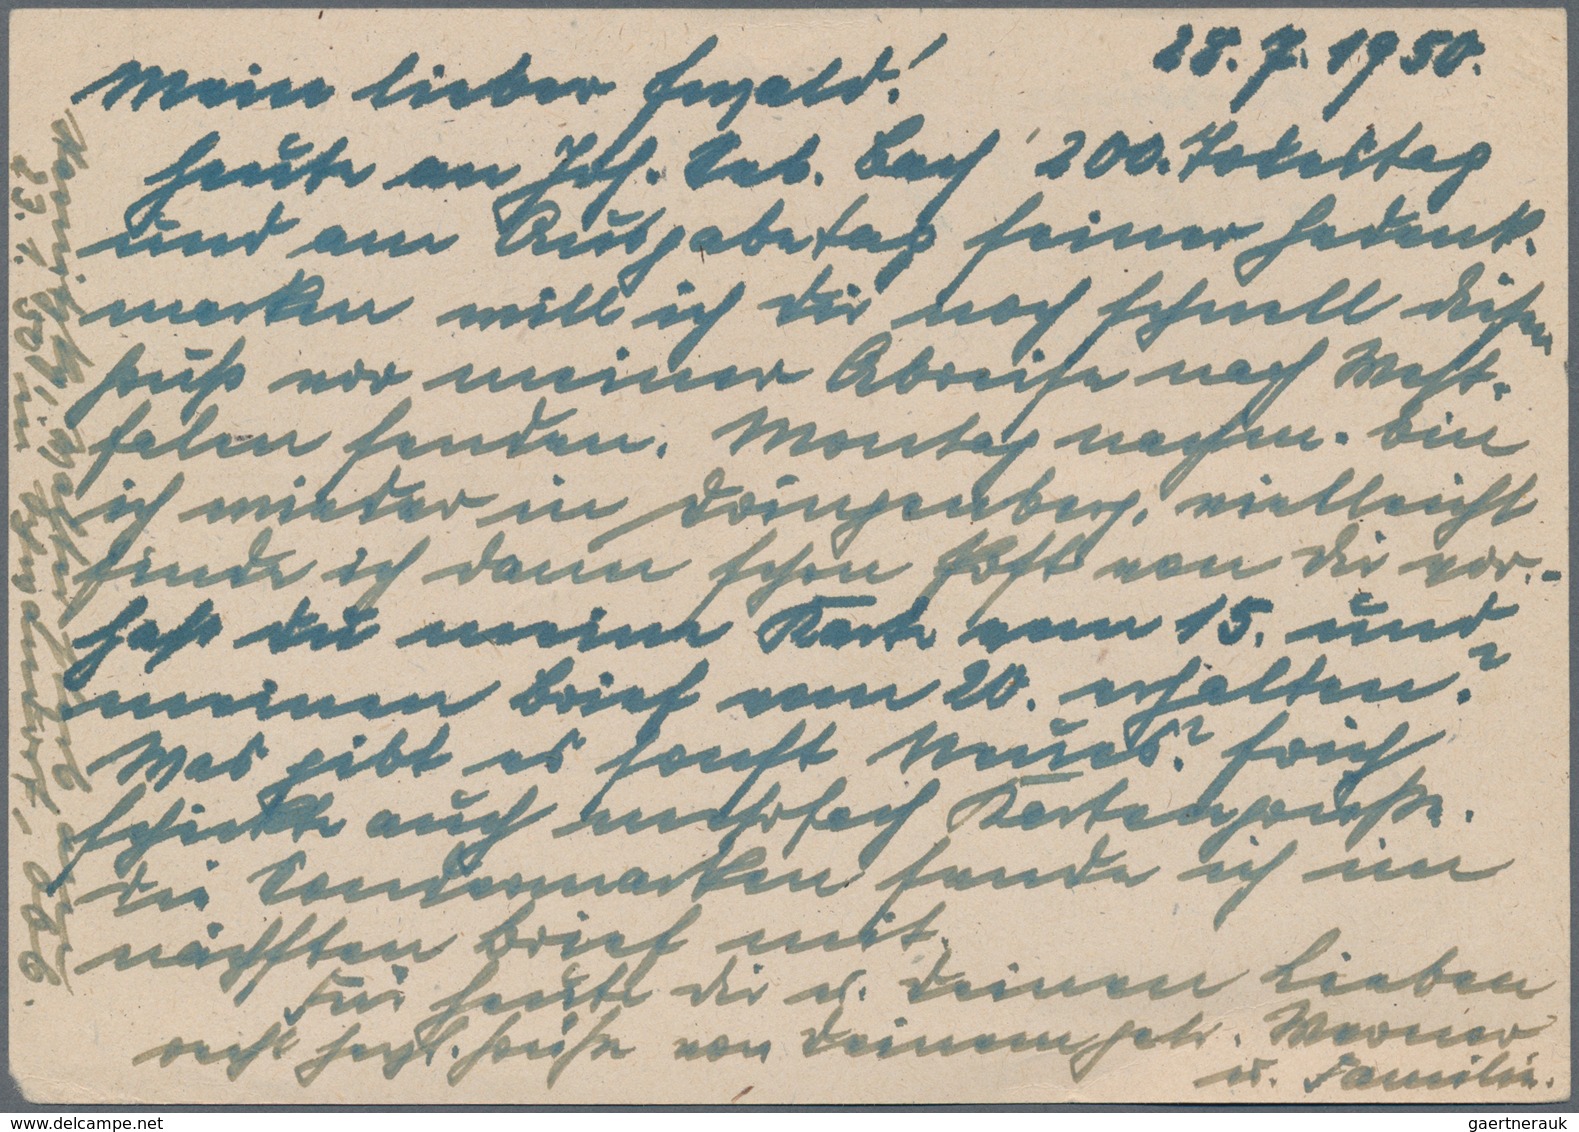 28.7.1950.
Mein lieber Ewald!
Heute an Joh. Seb. Bach' 200. Todestag
und am Ausgabetag seiner Gedenk-
marken will ich Dir noch schnell diesen
Gruß vor meiner Abreise nach West-
falen senden. Montag nachm. bin
ich wieder in Dringenberg, vielleicht
finde ich dann schon Post von Dir vor.-
Hast Du meine Karte vom 15. und
meinen Brief vom 20. erhalten?
Was gibt es sonst Neues? Erich
schickte auch mehrfach Kartengrüße.
Die Sondermarken sende ich im
nächsten Brief mit.
Für heute Dir u. Deinen Lieben
recht herzl. Grüße von Deinem getr. Werner
u. Familie.
23. 1. 50 in